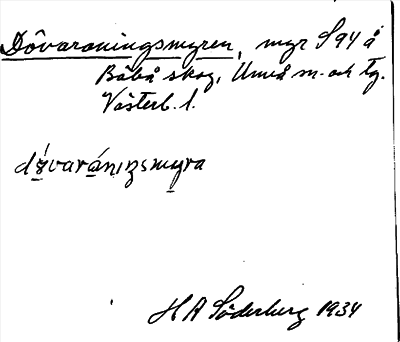 Dövaraningsmyren, myr S 94 å
Böbå skog, Umeå sn. och tg.
Västerb. l.
dø̀varánıŋsmyra
H A Söderberg 1934